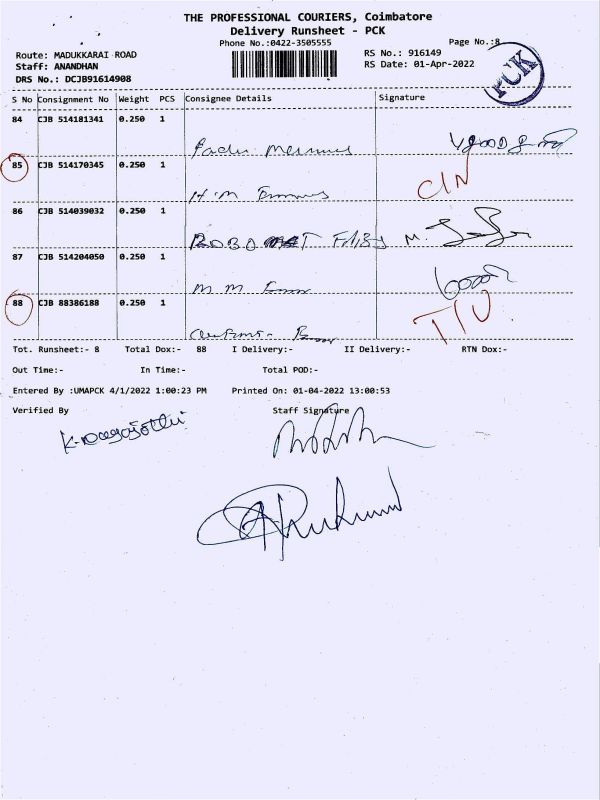 THE PROFESSIONAL COURIERS, Coimbatore
Delivery Runsheet - PCK
Phone No.:0422-3505555
Page No.:8
Route: MADUKKARAI ROAD
RS No.: 916149
Staff: ANANDHAN
RS Date: 01-Apr-2022
DRS No.: DCJB91614908
PCK
S No Consignment No Weight PCS Consignee Details Signature
84 CJB 514181341 0.250 1
85 CJB 514170345 0.250 1
H.M
CIN
86 CJB 514039032 0.250 1
ROBO
M.
87 CJB 514204050 0.250 1
M M
88 CJB 88386188 0.250 1
Tot. Runsheet:- 8 Total Dox:- 88 I Delivery:- II Delivery:- RTN Dox:-
Out Time:- In Time:- Total POD:-
Entered By :UMAPCK 4/1/2022 1:00:23 PM Printed On: 01-04-2022 13:00:53
Verified By Staff Signature